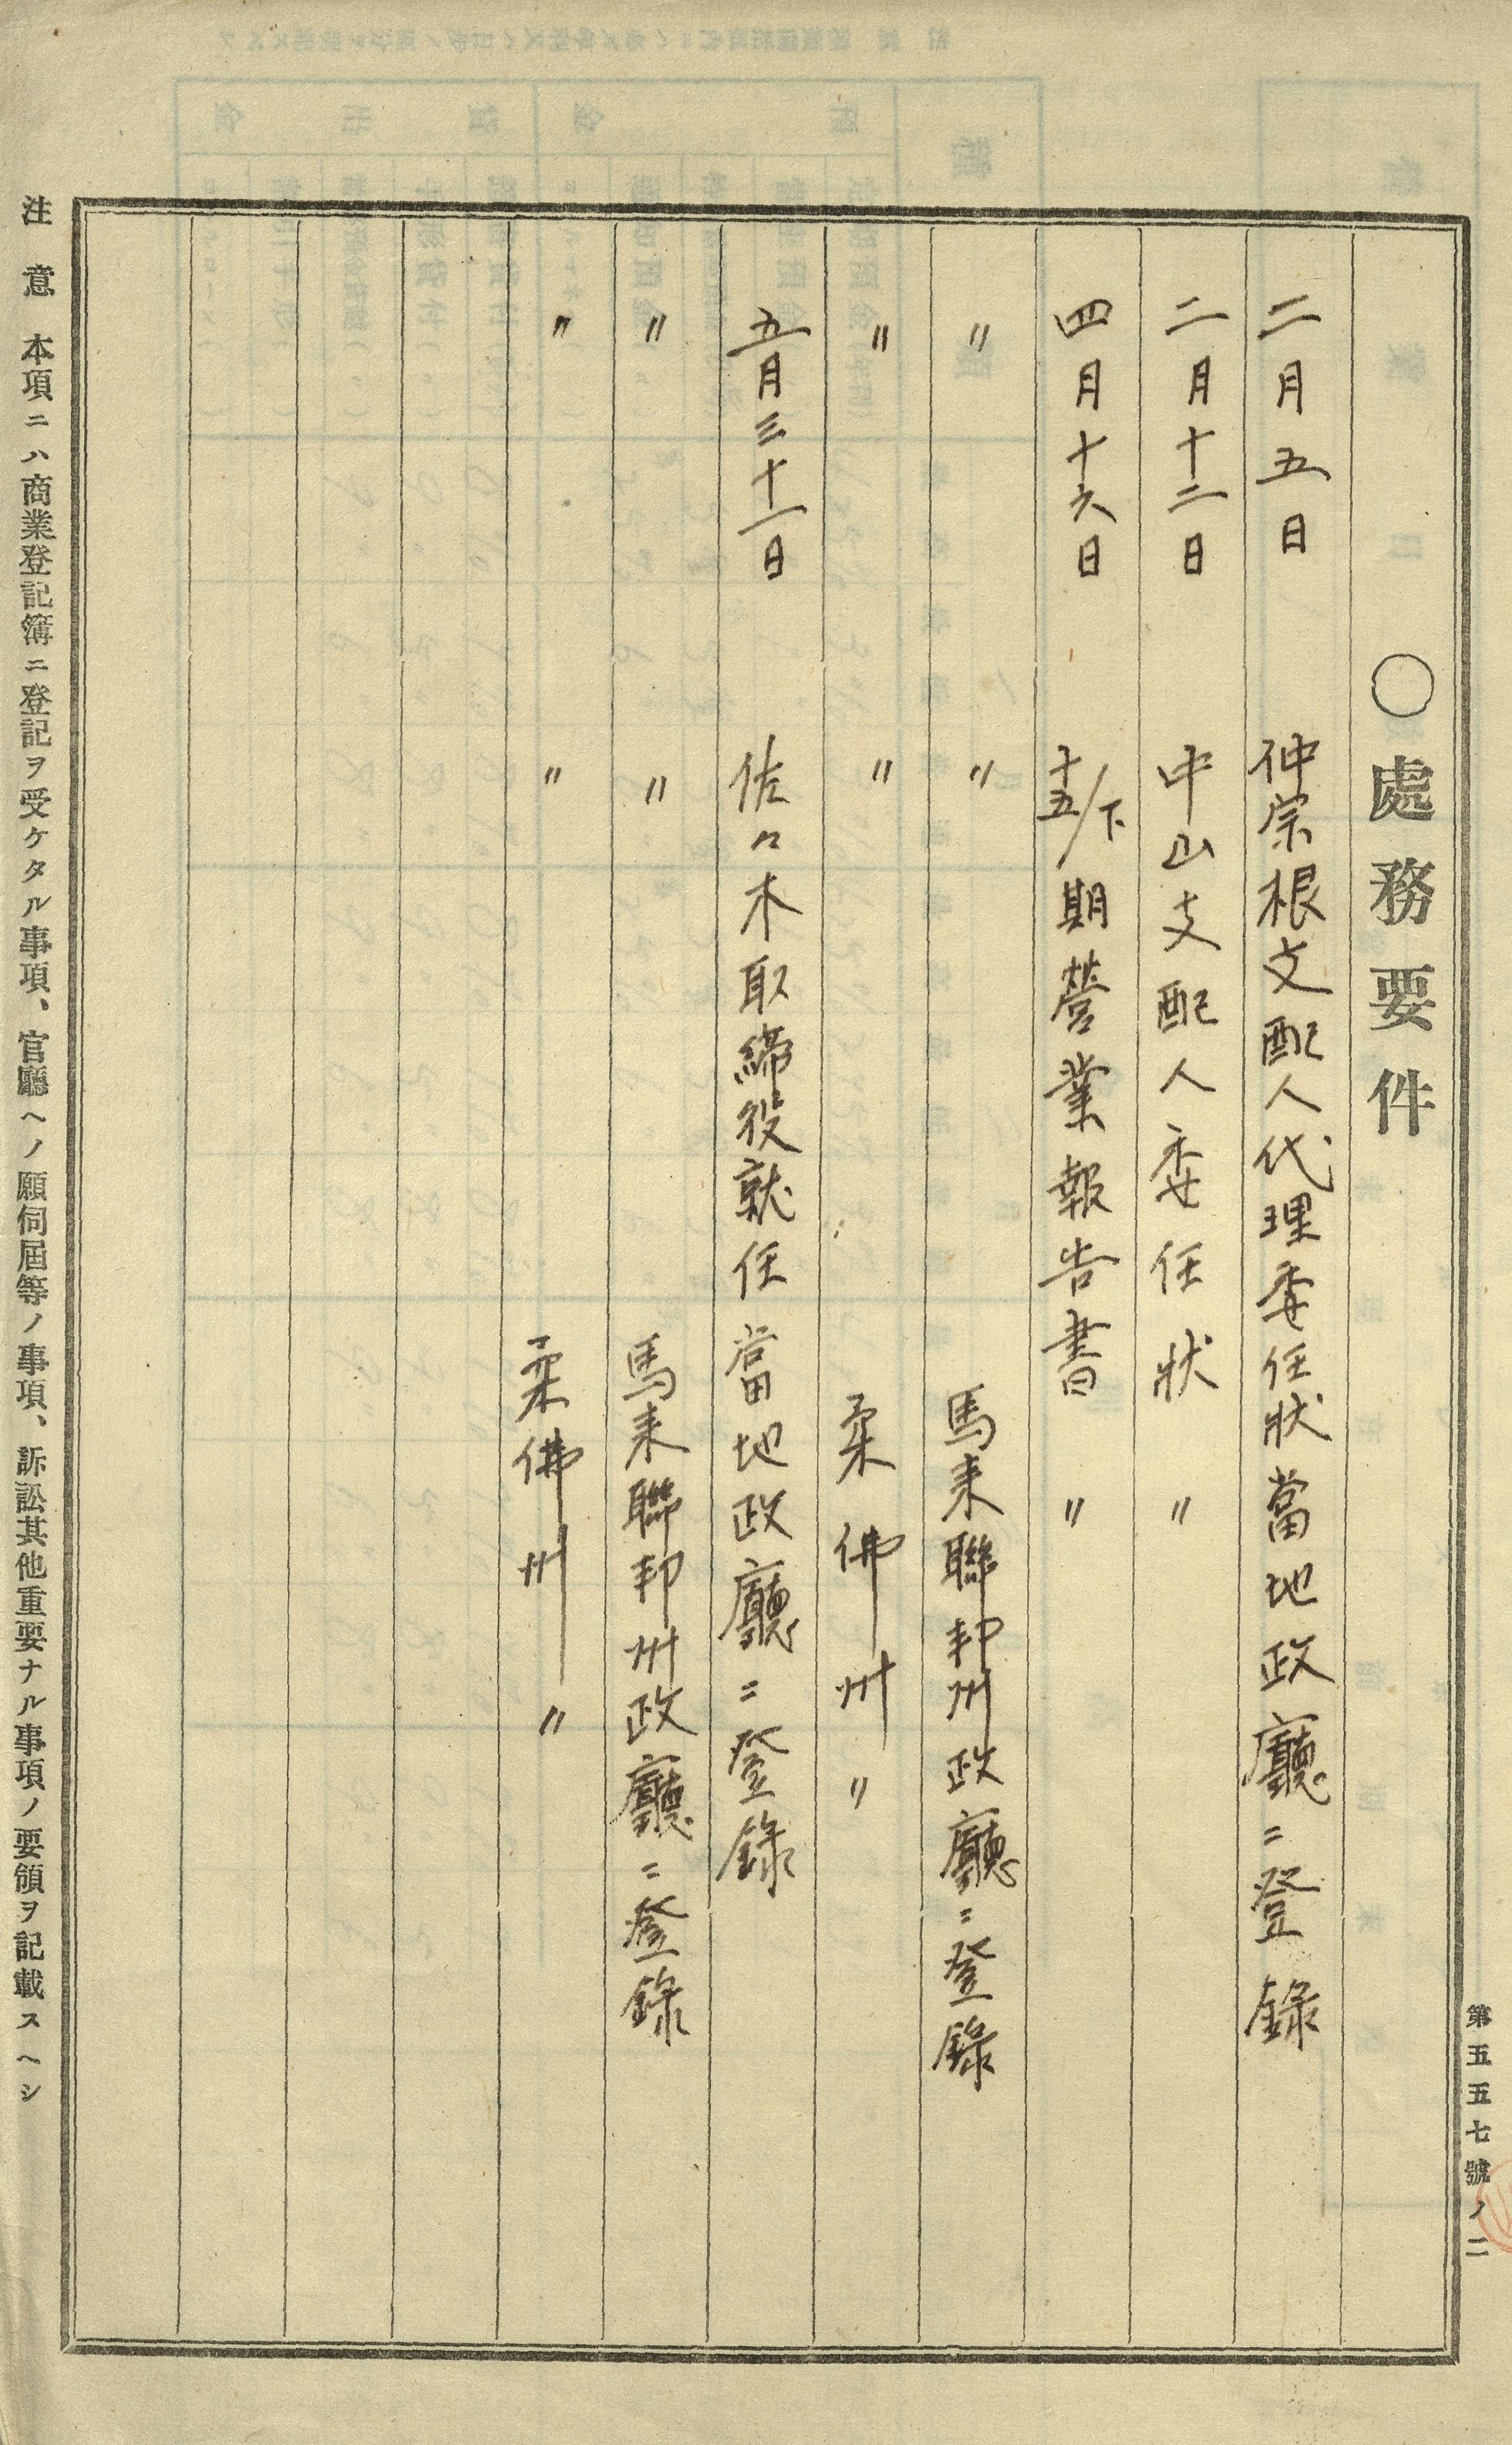 第五五七號ノ二
○處務要件
二月五日 仲宗根支配人代理委任狀當地政廳ニ登錄
二月十二日 中山支配人委任狀 〃
四月十六日 十五/下期營業報告書 〃
〃 〃 馬来聯邦州政廳ニ登錄
〃 〃 柔佛州 〃
五月三十一日 佐々木取締役就任當地政廳ニ登錄
〃 〃 馬来聯邦州政廳ニ登錄
〃 〃 柔佛州 〃
注意 本項ニハ商業登記簿ニ登記ヲ受ケタル事項、官廳ヘノ願伺屆等ノ事項、訴訟其他重要ナル事項ノ要領ヲ記載スヘシ